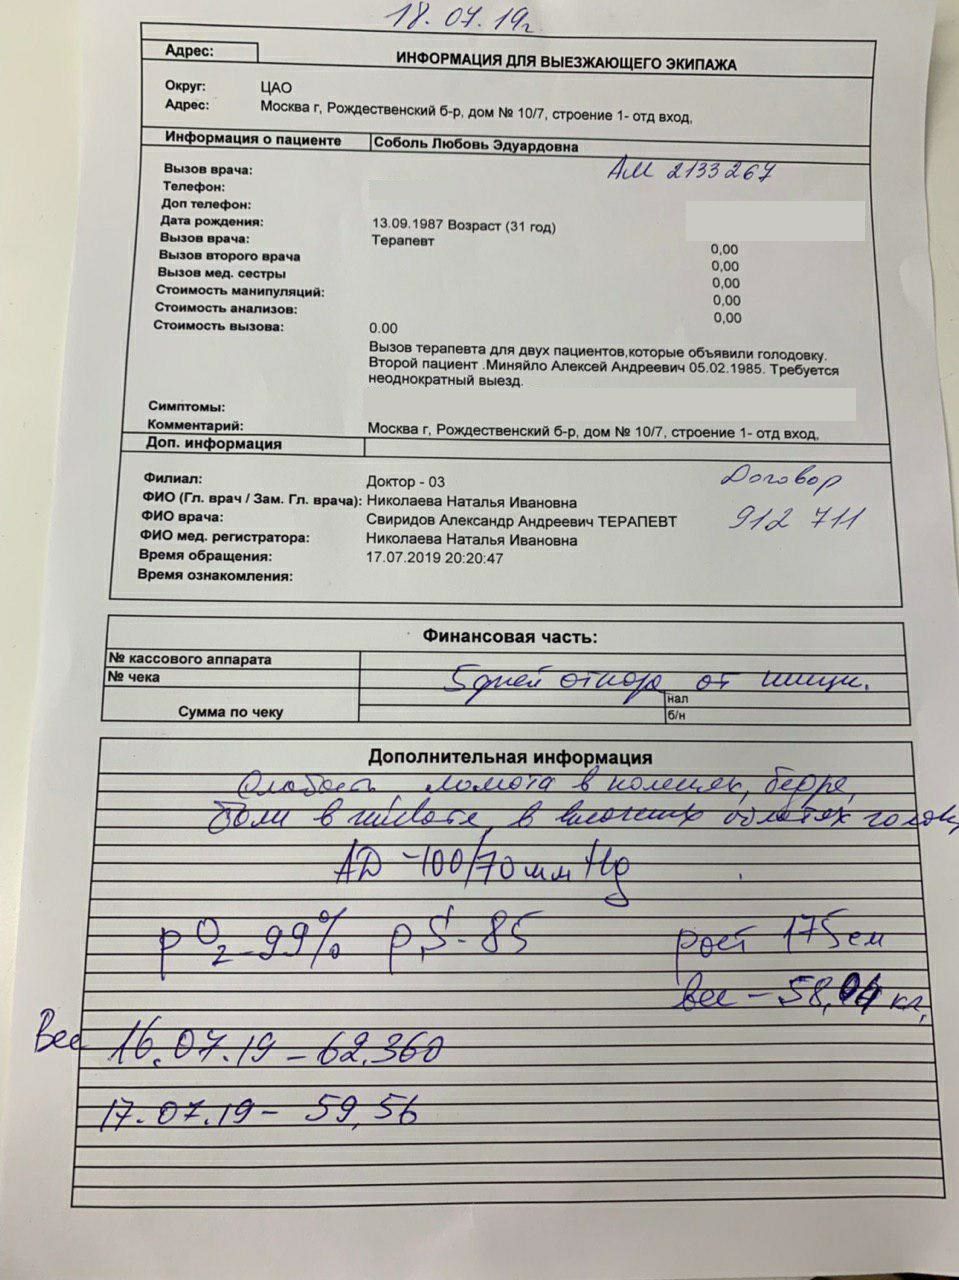 18.07.19г.
Адрес:
ИНФОРМАЦИЯ ДЛЯ ВЫЕЗЖАЮЩЕГО ЭКИПАЖА
Округ: ЦАО
Адрес: Москва г, Рождественский б-р, дом № 10/7, строение 1- отд вход,
Информация о пациенте Соболь Любовь Эдуардовна
Вызов врача: АМ 2133267
Телефон:
Доп телефон:
Дата рождения: 13.09.1987 Возраст (31 год)
Вызов врача: Терапевт 0,00
Вызов второго врача 0,00
Вызов мед. сестры 0,00
Стоимость манипуляций: 0,00
Стоимость анализов: 0,00
Стоимость вызова: 0.00
Вызов терапевта для двух пациентов,которые объявили голодовку.
Второй пациент .Миняйло Алексей Андреевич 05.02.1985. Требуется
неоднократный выезд.
Симптомы:
Комментарий: Москва г, Рождественский б-р, дом № 10/7, строение 1- отд вход,
Доп. информация
Филиал: Доктор - 03 Договор
ФИО (Гл. врач / Зам. Гл. врача): Николаева Наталья Ивановна
ФИО врача: Свиридов Александр Андреевич ТЕРАПЕВТ 912 711
ФИО мед. регистратора: Николаева Наталья Ивановна
Время обращения: 17.07.2019 20:20:47
Время ознакомления:
Финансовая часть:
№ кассового аппарата
№ чека 5 дней отказа от пищи.
Сумма по чеку нал
б/н
Дополнительная информация
Слабость, ломота в коленях, бедре,
боли в животе, в височных областях головы
АД -100/70 мм Hg
рО2-99% p,S-85 рост 175 см
вес - 58,04 кг,
Вес 16.07.19 - 62.360
17.07.19 - 59,56